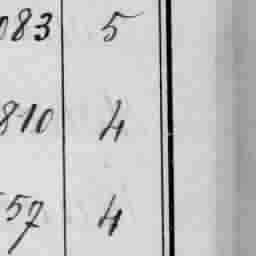 083 5
810 4
57 4